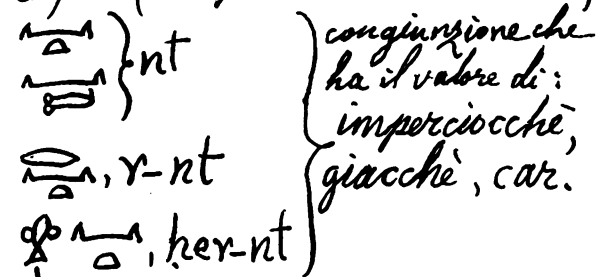 nt
𓂋𓈖𓏏, r-nt
𓁷𓈖𓏏, her-nt
congiunzione che
ha il valore di:
imperciocchè,
giacchè, car.